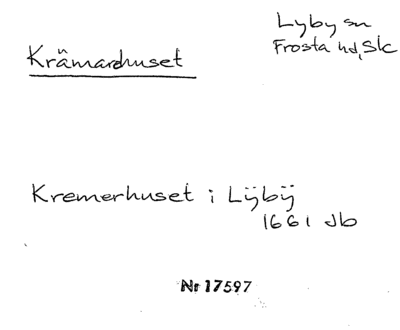 Lyby sn
Frosta hd, Sk
Krämarehuset
Kremerhuset i Lÿbÿ
1661 Jb
Nr 17597